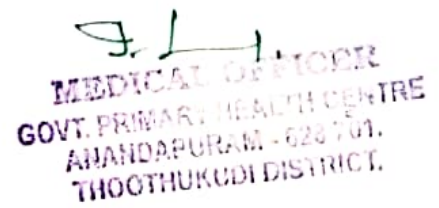 MEDICAL OFFICER
GOVT. PRIMARY HEALTH CENTRE
ANANDAPURAM - 628 701.
THOOTHUKUDI DISTRICT.